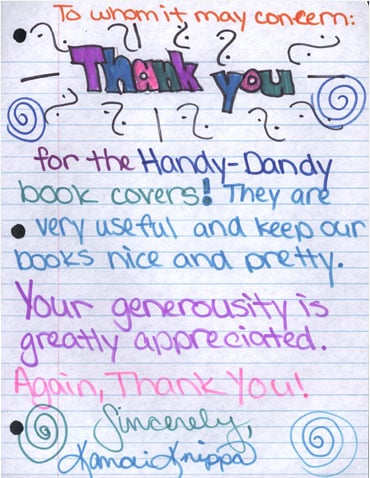 To whom it may concern:
Thank you
for the Handy-Dandy
book covers! They are
very useful and keep our
books nice and pretty.
Your generousity is
greatly appreciated.
Again, Thank You!
Sincerely,
Kamari Knippa